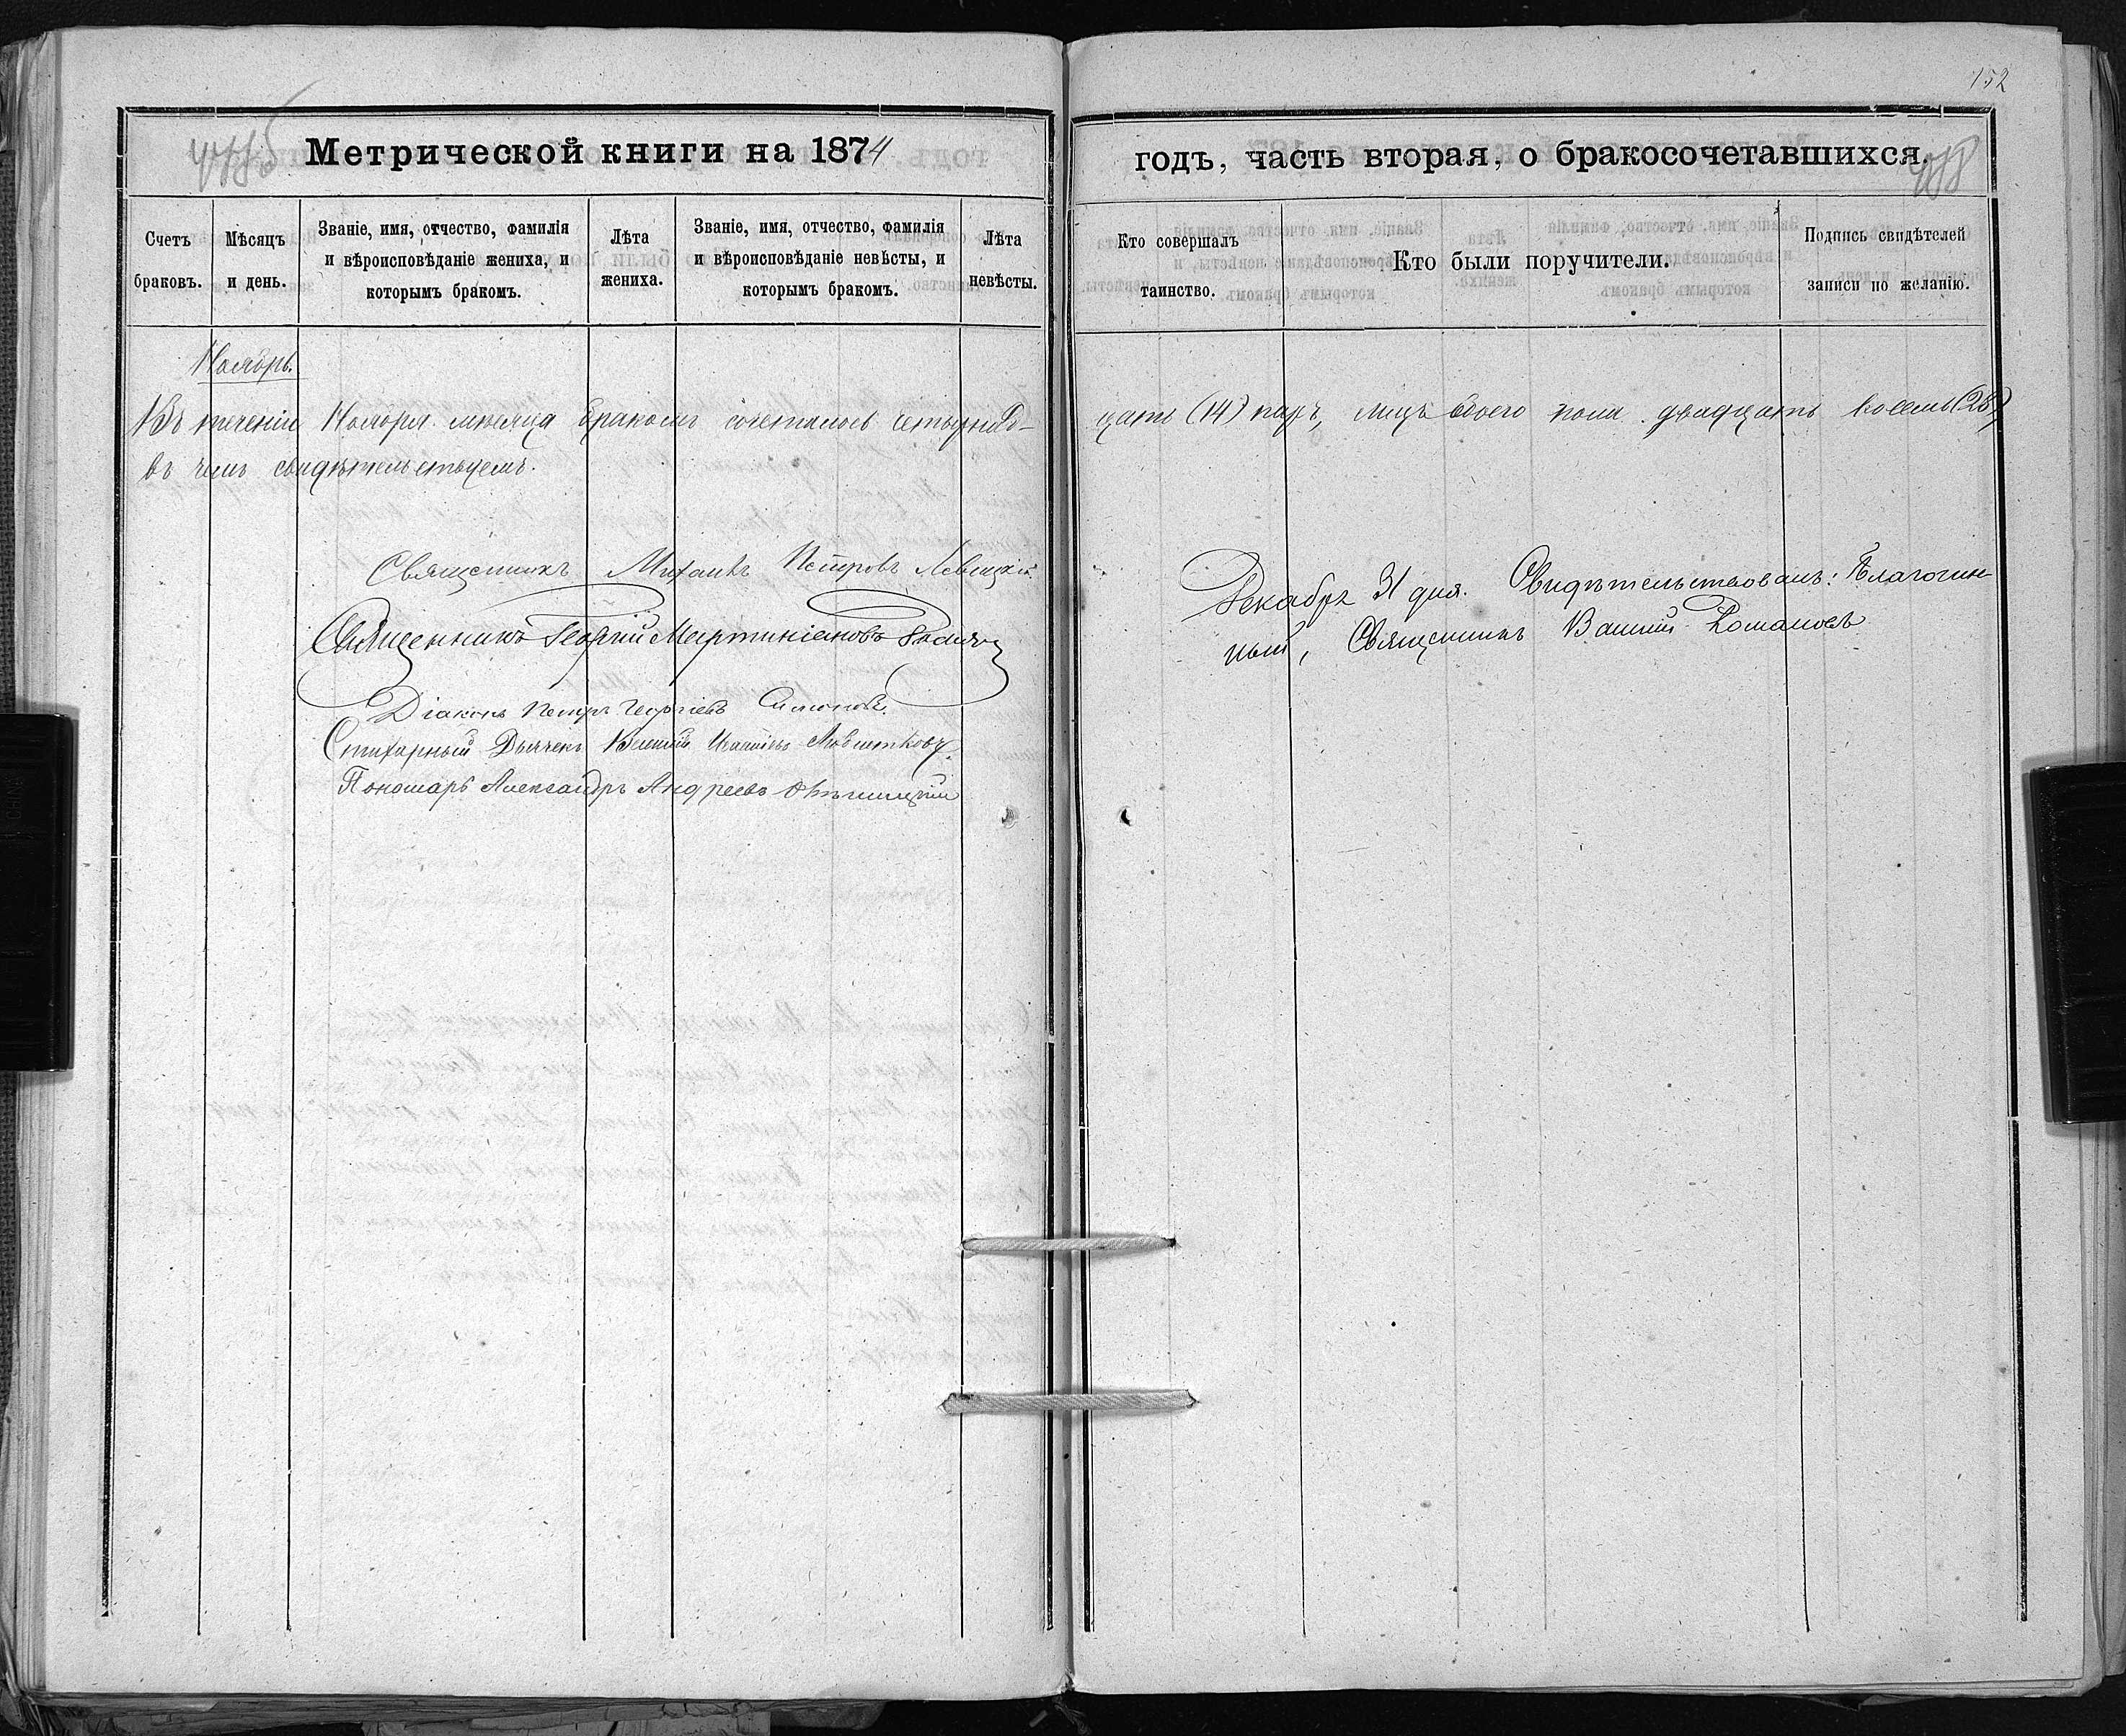 152
Метрической книги на 1874
годъ, часть вторая, о бракосочетавшихся.
Счетъ браковъ.
Мѣсяцъ и день.
Званіе, имя, отчество, фамилія и вѣроисповѣданіе жениха, и которымъ бракомъ.
Лѣта жениха.
Званіе, имя, отчество, фамилія и вѣроисповѣданіе невѣсты, и которымъ бракомъ.
Лѣта невѣсты.
Кто совершалъ таинство.
Кто были поручители.
Подпись свидѣтелей записи по желанію.
Ноябрь.
Въ теченіи Ноября мѣсяца бракомъ сочеталось четырнад-
цать (14) паръ, лицъ обоего пола двадцать восемь (28)
въ чемъ свидѣтельствуемъ.
Священникъ Михаилъ Петровъ Левицкій.
Священникъ Георгій Мартиніановъ
Діаконъ Петръ Георгіевъ Симоновъ.
Стихарный Дьячекъ
Пономарь Александръ Андреевъ
Декабря 31 дня. Свидѣтельствовалъ: Благочин-
ный, Священникъ Романовъ